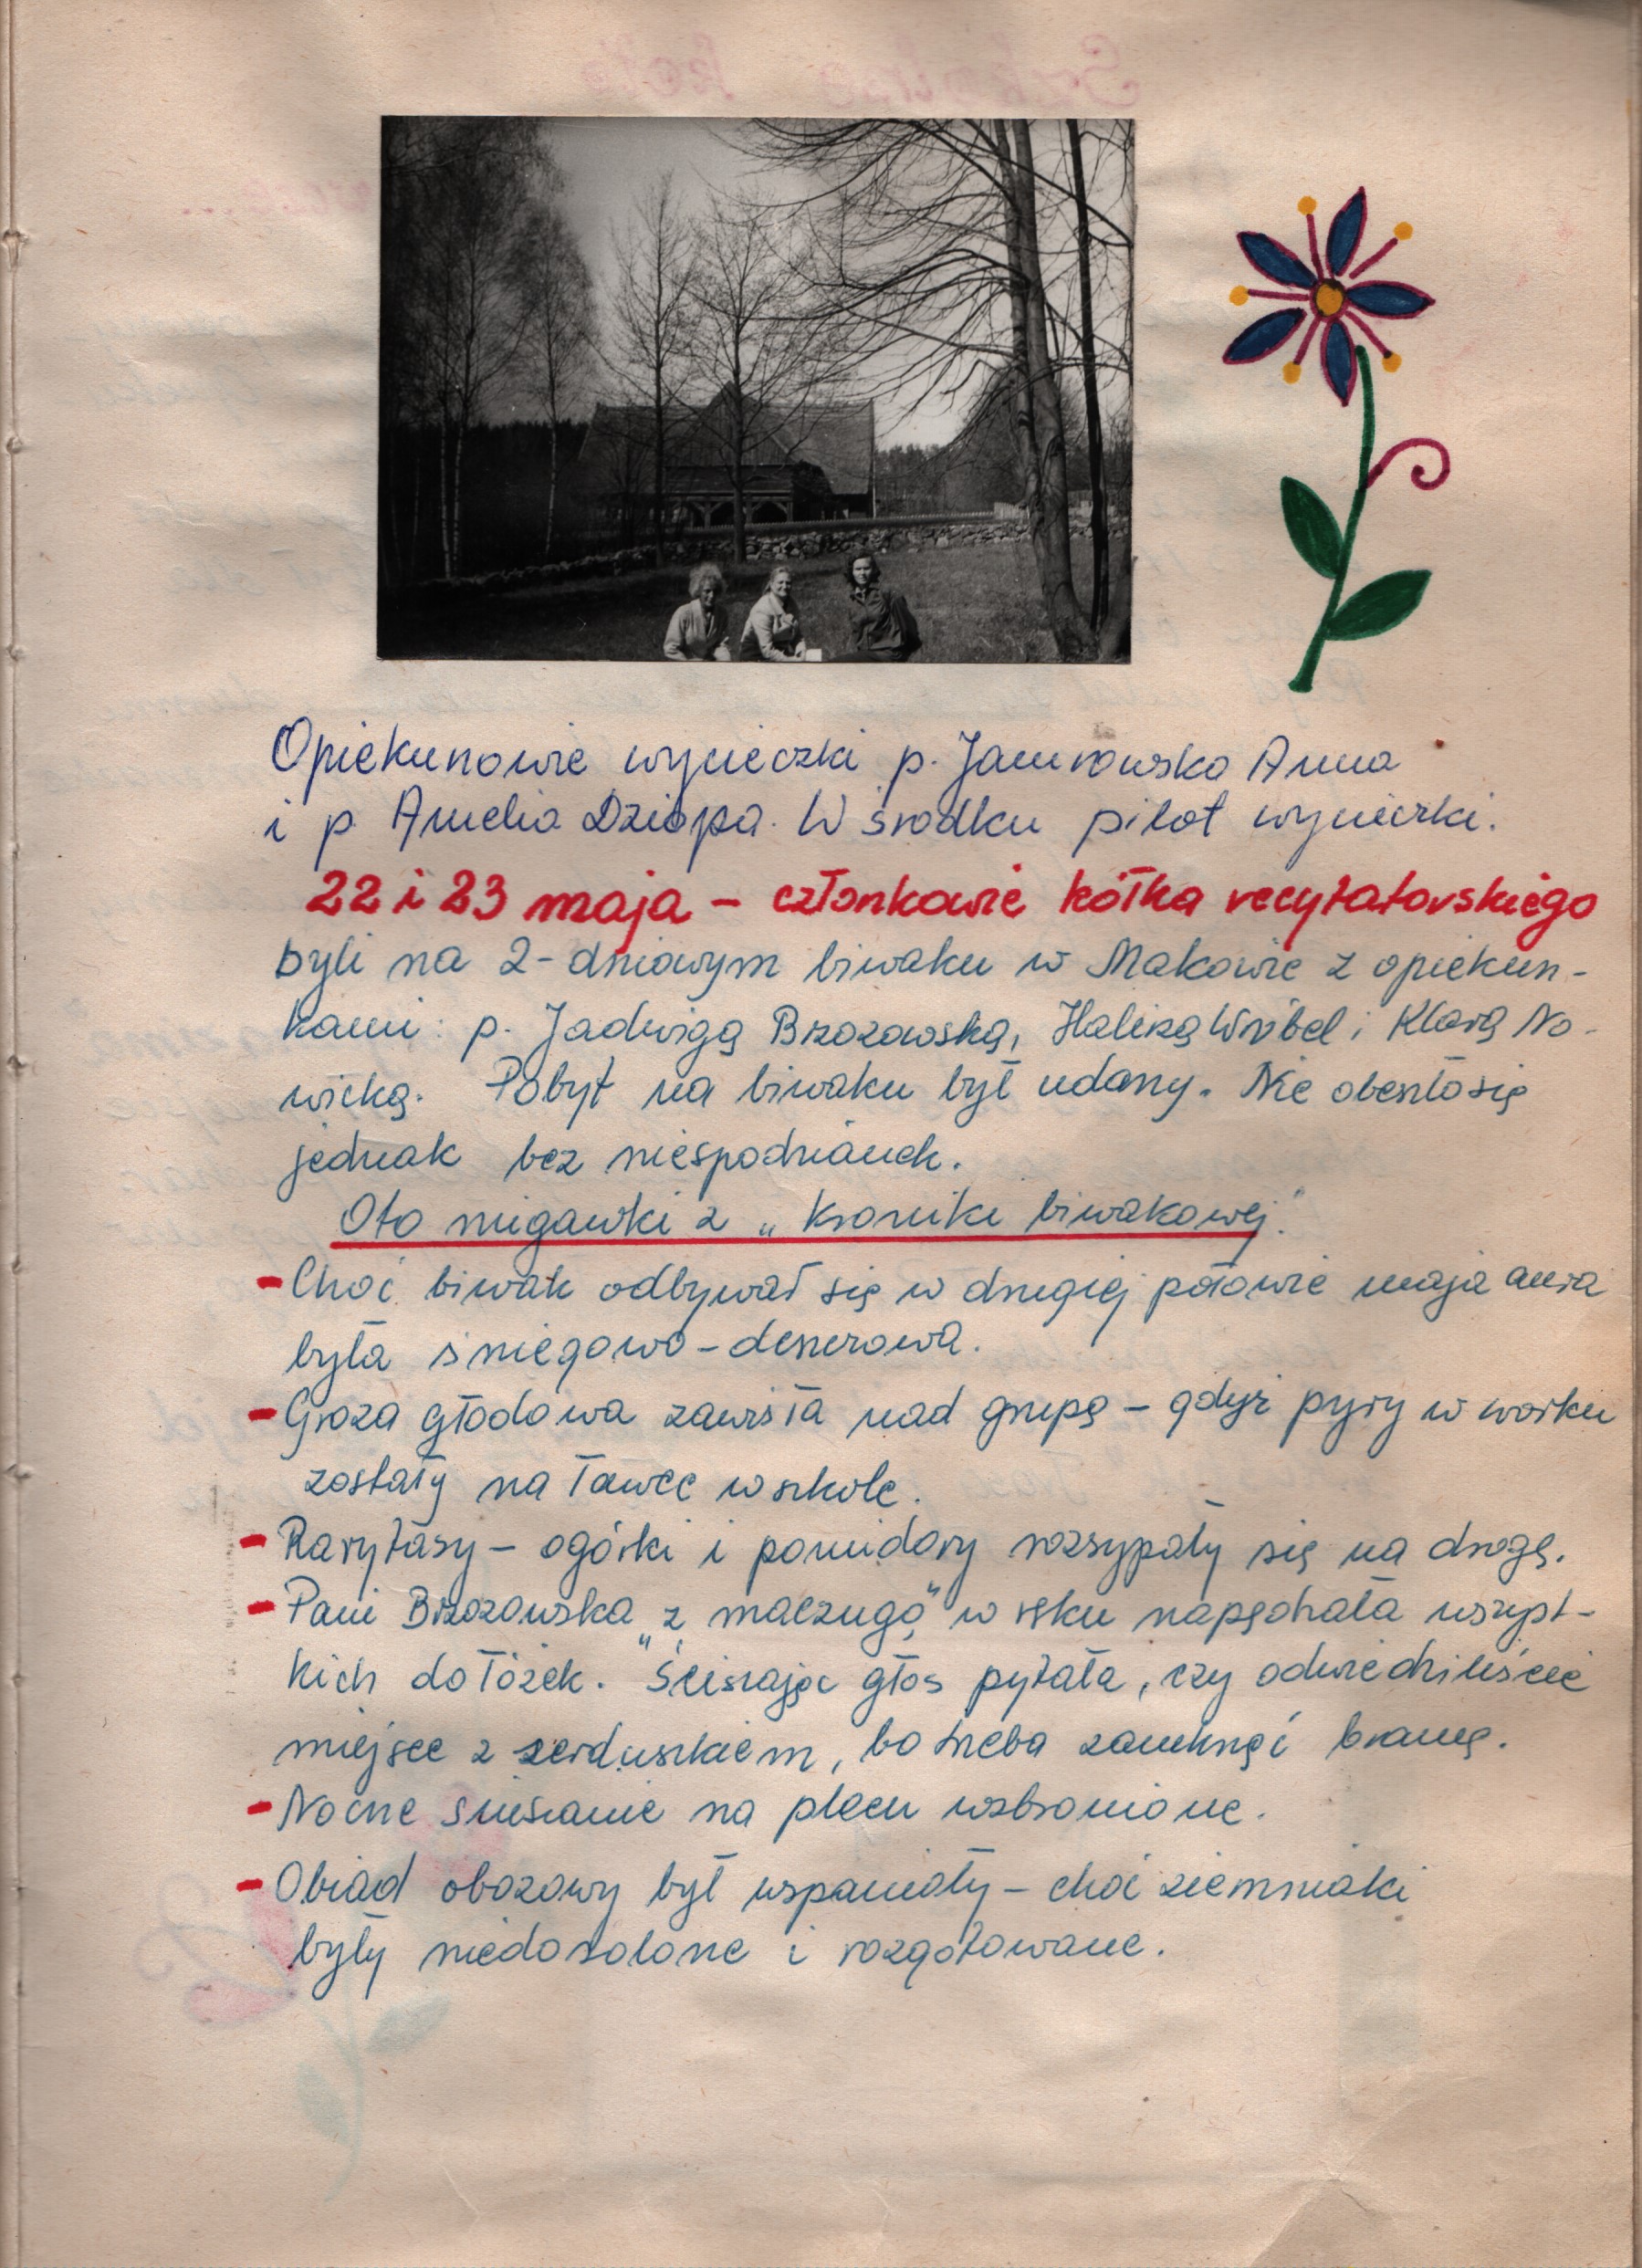 Opiekunowie wycieczki p. Jamrowska Anna
i p. Amelia Dziopa. W środku pilot wycieczki.
22 i 23 maja – członkowie kółka recytatorskiego
byli na 2-dniowym biwaku w Makowie z opiekun-
kami: p. Jadwigą Brzozowską, Haliną Wróbel i Klarą No-
wicką. Pobyt na biwaku był udany. Nie obeszło się
jednak bez niespodzianek.
Oto migawki z „Kroniki biwakowej."
- Choć biwak odbywał się w drugiej połowie maja aura
była śniegowo-deszczowa.
- Groza głodowa zawisła nad grupą – gdyż pyry w worku
zostały na ławce w szkole.
- Rarytasy – ogórki i pomidory rozsypały się na drogę.
- Pani Brzozowska „z maczugą" w ręku napędzała wszyst-
kich do łóżek. Ściszając głos pytała, czy odwiedziliście
miejsce z serduszkiem, bo trzeba zamknąć bramę.
- Nocne śmianie na placu wzbronione.
- Obiad obozowy był wspaniały – choć ziemniaki
były niedosolone i rozgotowane.